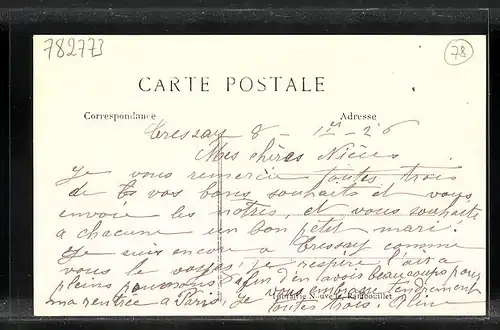 782773
78
CARTE POSTALE
Correspondance
Adresse
Cressay 8 - 1er - 26
Mes chères Nièces
Je vous remercie toutes trois
de vos bons souhaits et vous
envoie les nôtres, et vous souhaite
a chacune un bon petit mari.
Je suis encore a Cressay comme
vous le voyez, je respire l'air a
pleins poumons afin d'en avoir beaucoup pour
ma rentrée a Paris, je vous embrasse tendrement
Neuve Rambouillet
toutes trois.